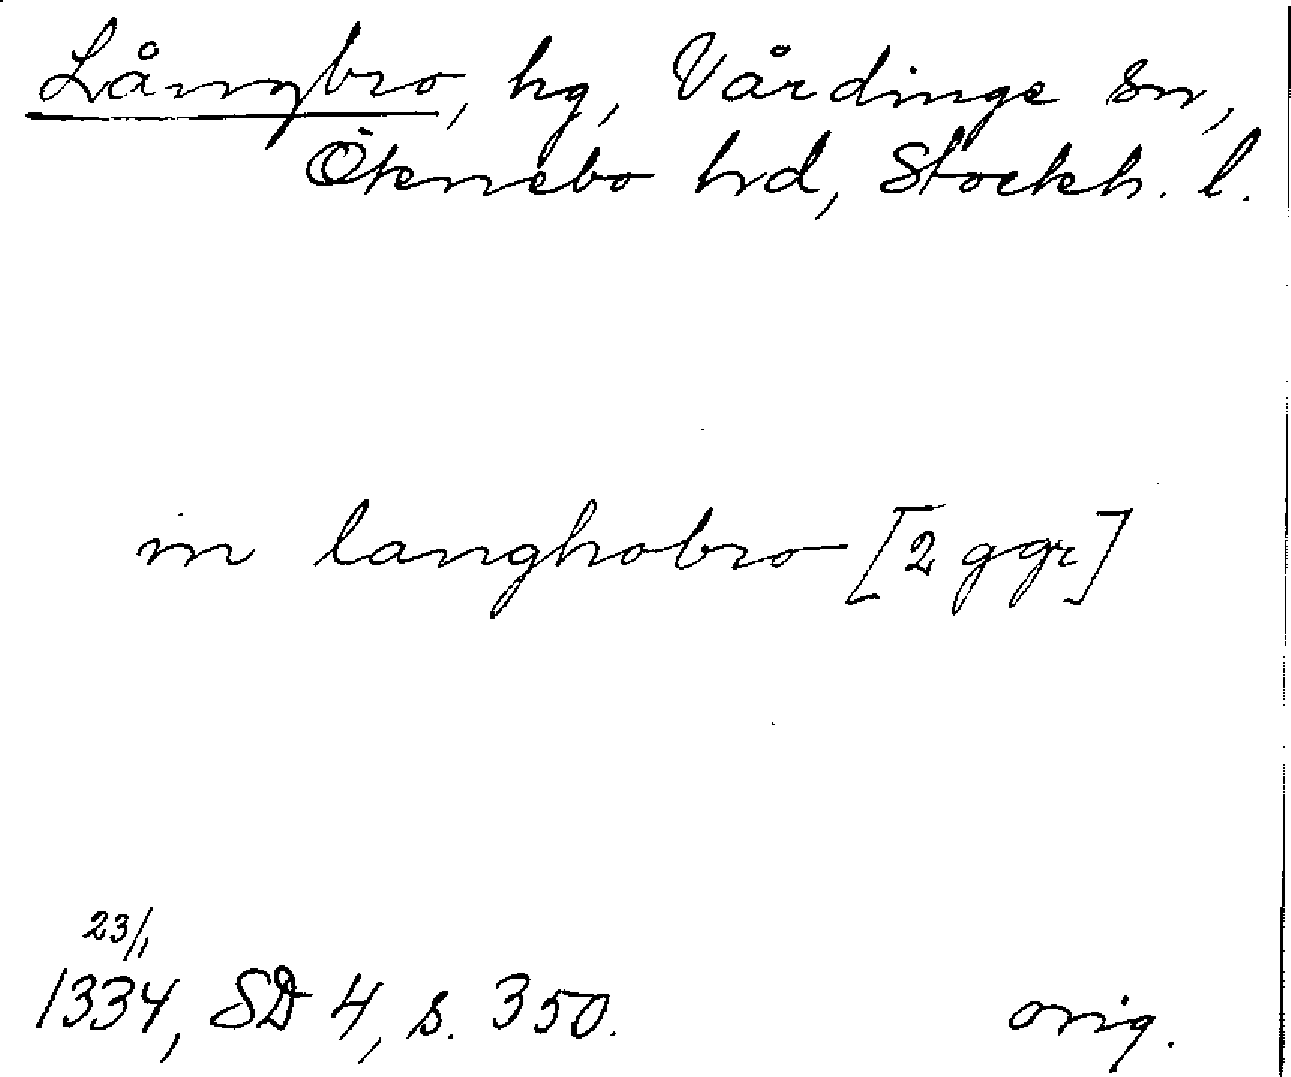 Långbro, hg, Vårdinge sn,
Öknebo hd, Stockh. l.
in langhobro [2 ggr]
23/1
1334, SD 4, s. 350.
orig.